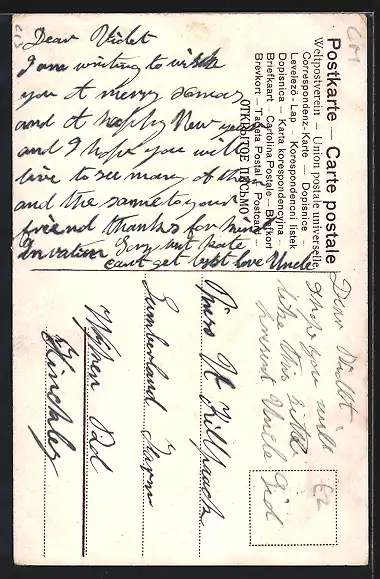 Dear Violet
I am writing to wish
you A merry xmas
and A happy New year
and I hope you will
live to see many of them
and the same to your
friend thanks for kind
Invation Sorry but Kate
cant get best love Uncle
Postkarte — Carte postale
Weltpostverein — Union postale universelle
Correspondenz-Karte — Dopisnice
Levelezö-Lap — Korespondencni listek
Dopisnica — Karta korespondencyjna
Briefkaart — Cartolina Postale — Brefkort
Brevkort — Tarjeta Postal — Postcard
ОТКРЫТОЕ ПИСЬМО
Dear Violet
I hope you will
like this little
present Uncle Sid
Miss V. Killpack
Sunderland Farm
Wykin Rd
Hinckley
£2